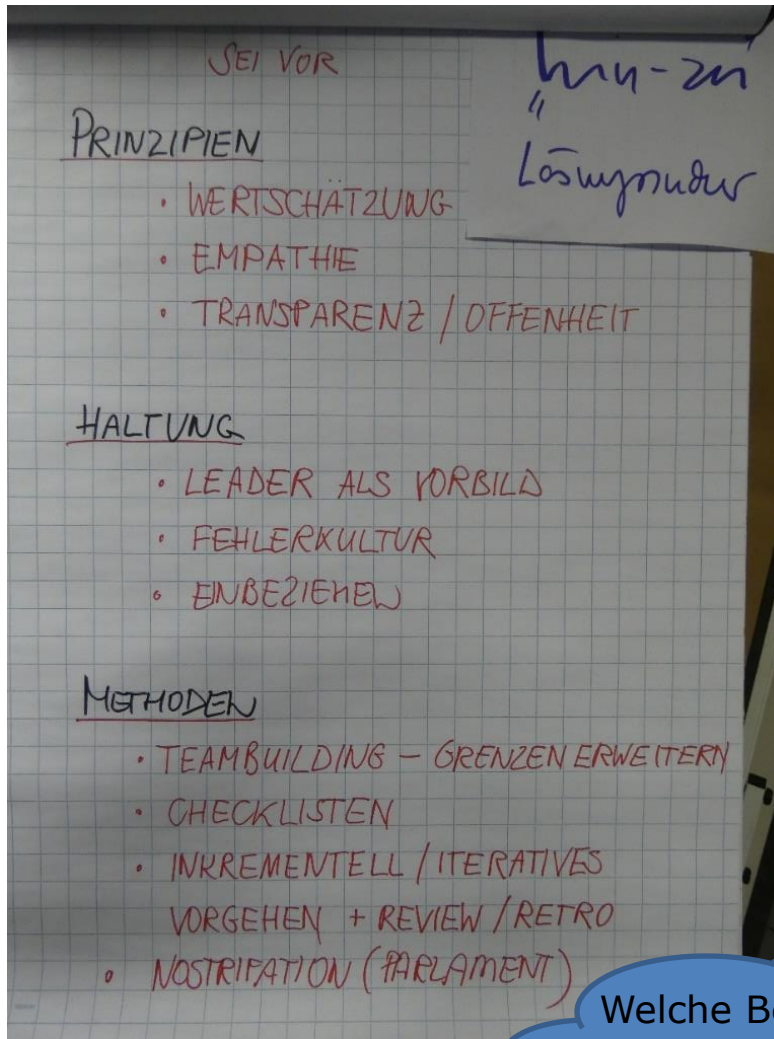 SEI VOR
PRINZIPIEN
• WERTSCHÄTZUNG
• EMPATHIE
• TRANSPARENZ / OFFENHEIT
HALTUNG
• LEADER ALS VORBILD
• FEHLERKULTUR
• EINBEZIEHEN
METHODEN
• TEAMBUILDING – GRENZEN ERWEITERN
• CHECKLISTEN
• INKREMENTELL / ITERATIVES
VORGEHEN + REVIEW / RETRO
• NOSTRIFATION (PARLAMENT)
Welche